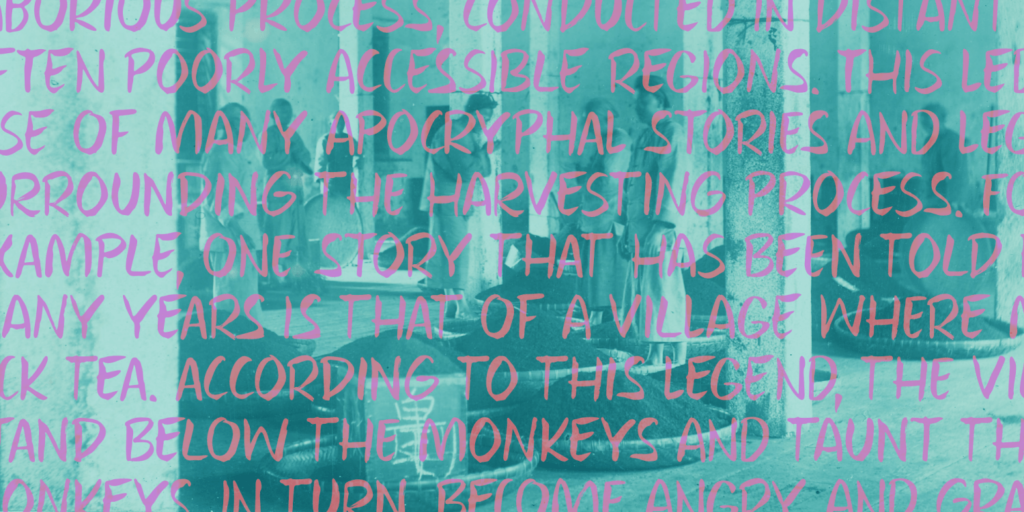 ABORIOUS PROCESS, CONDUCTED IN DISTANT
FTEN POORLY ACCESSIBLE REGIONS. THIS LED
SE OF MANY APOCRYPHAL STORIES AND LEG
RROUNDING THE HARVESTING PROCESS. FO
XAMPLE, ONE STORY THAT HAS BEEN TOLD
ANY YEARS IS THAT OF A VILLAGE WHERE M
CK TEA. ACCORDING TO THIS LEGEND, THE VI
TAND BELOW THE MONKEYS AND TAUNT TH
ONKEYS, IN TURN, BECOME ANGRY AND GRA